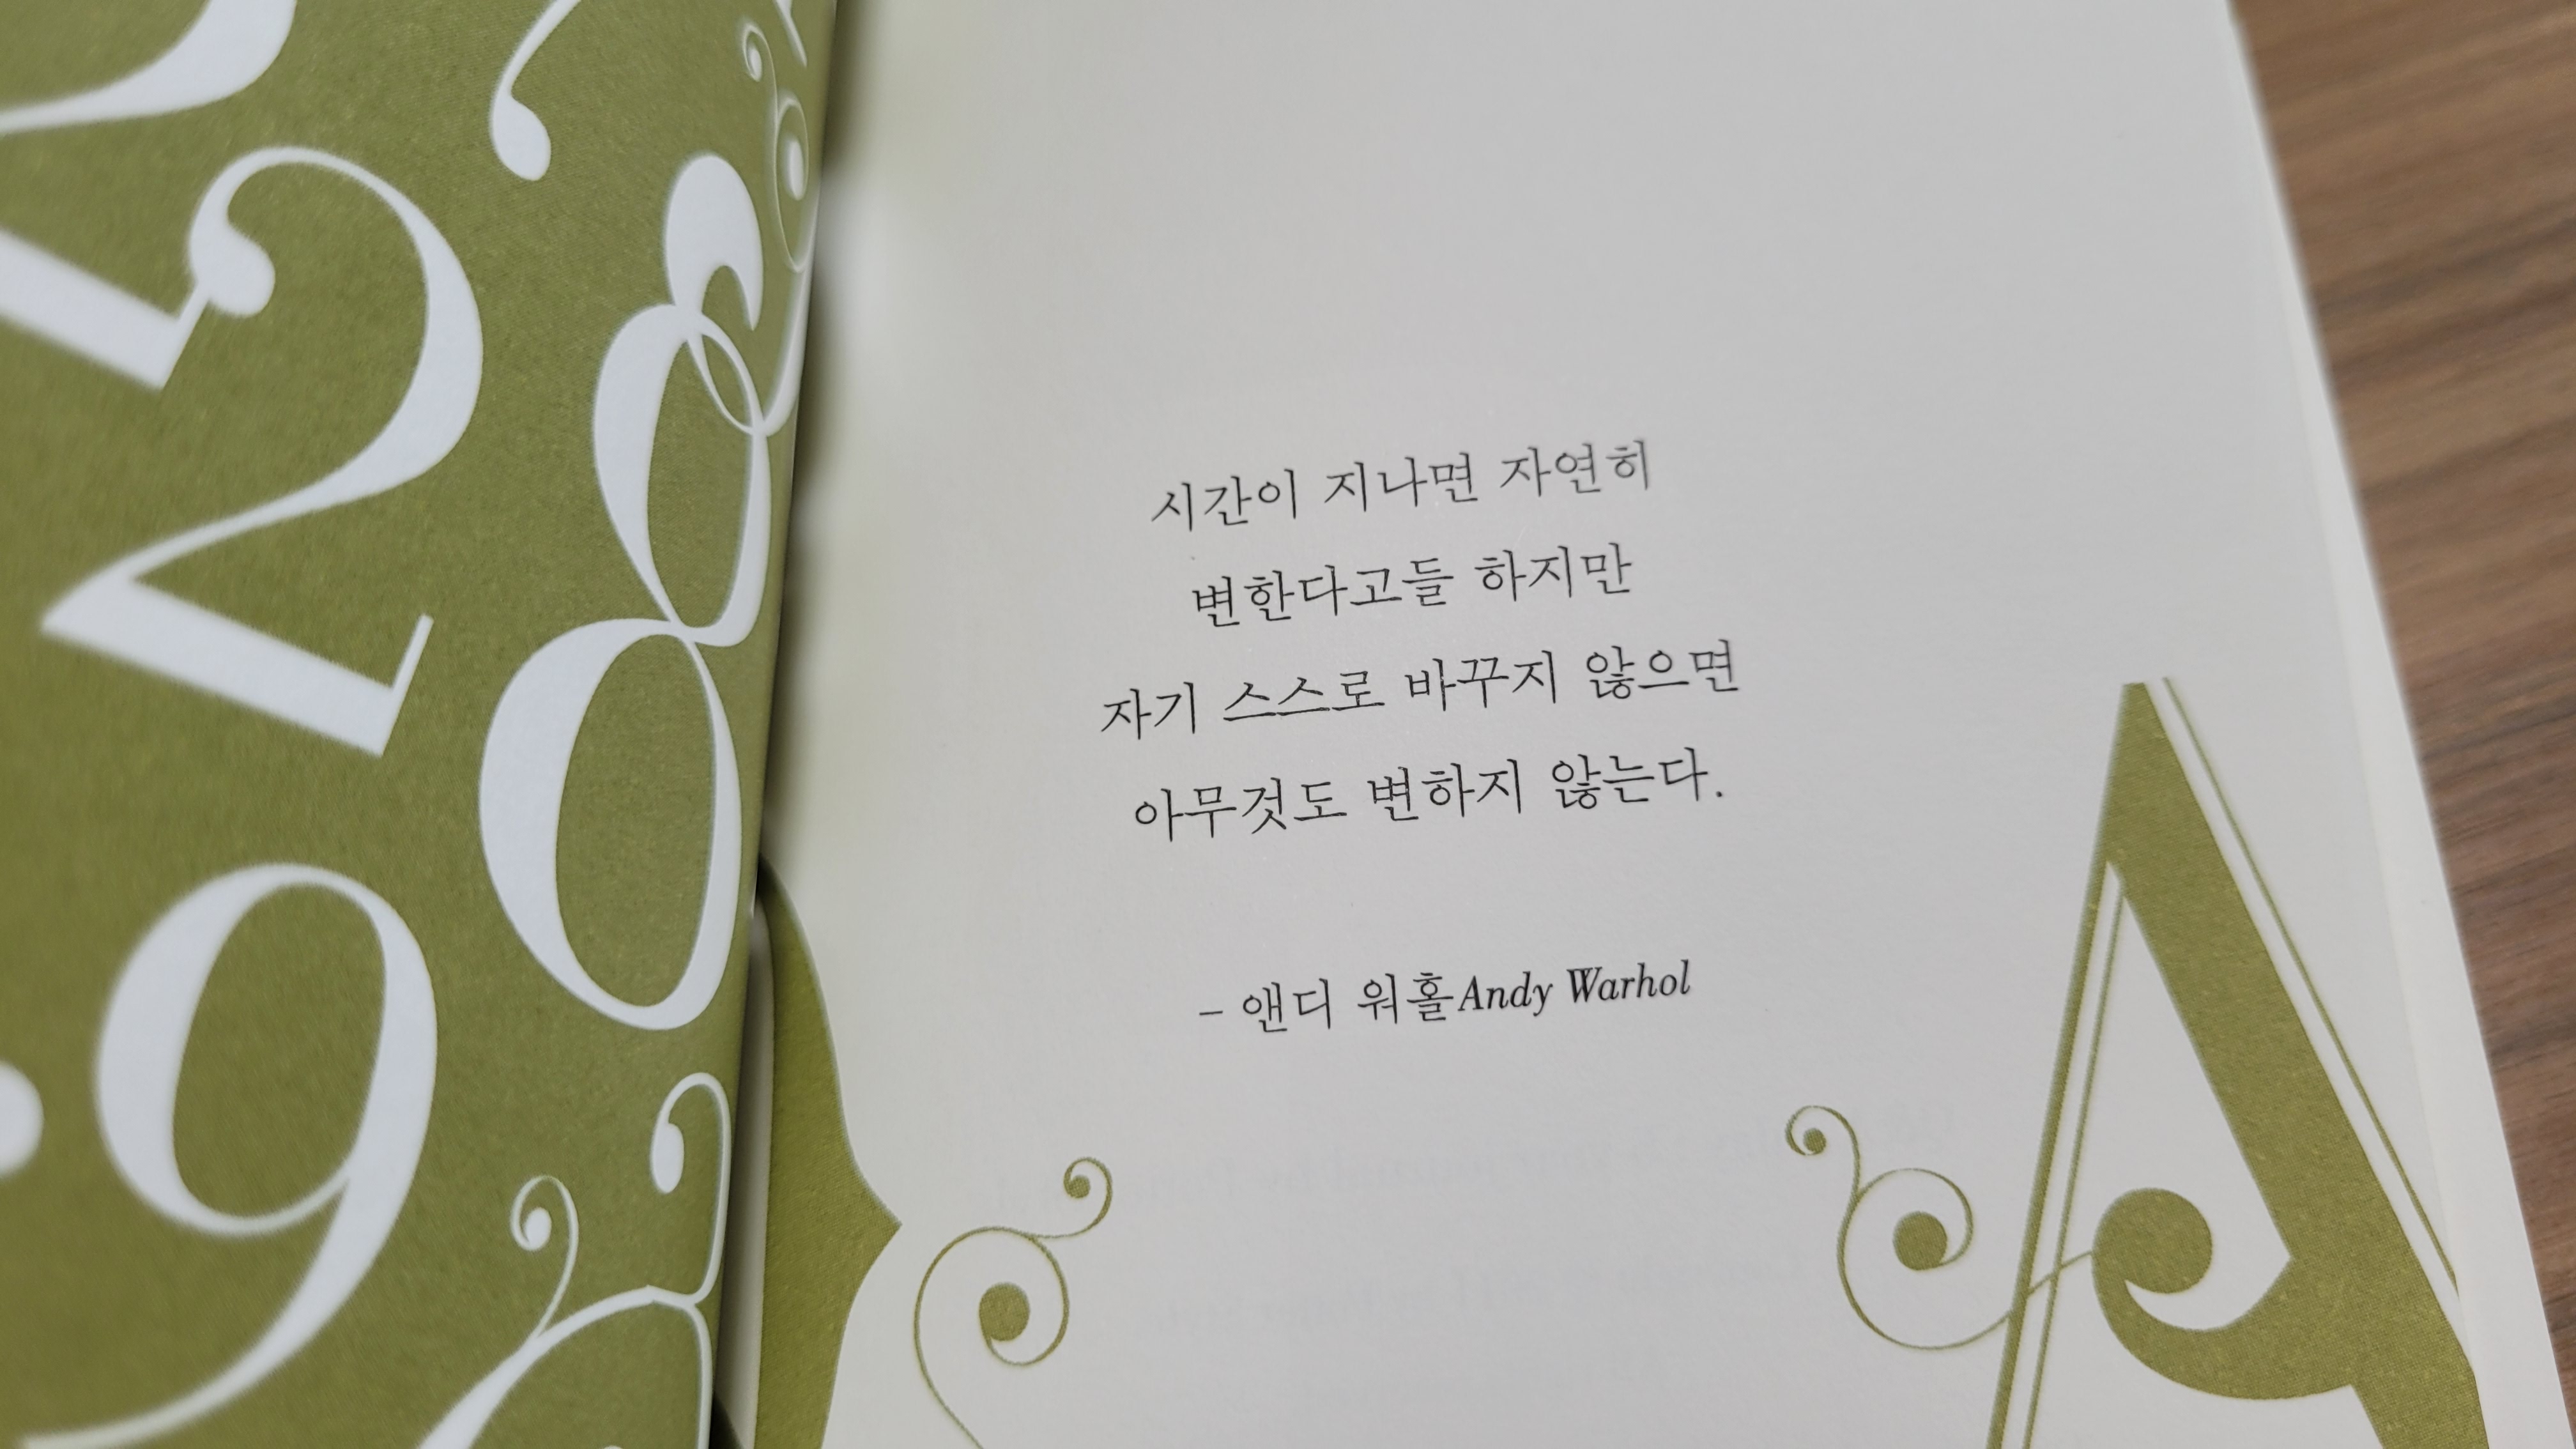 시간이 지나면 자연히
변한다고들 하지만
자기 스스로 바꾸지 않으면
아무것도 변하지 않는다.
– 앤디 워홀Andy Warhol
A